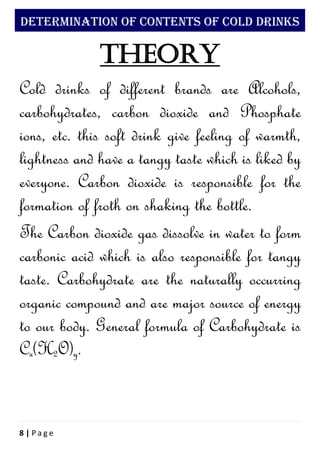 DETERMINATION OF CONTENTS OF COLD DRINKS
THEORY
Cold drinks of different brands are Alcohols,
carbohydrates, carbon dioxide and Phosphate
ions, etc. this soft drink give feeling of warmth,
lightness and have a tangy taste which is liked by
everyone. Carbon dioxide is responsible for the
formation of froth on shaking the bottle.
The Carbon dioxide gas dissolve in water to form
carbonic acid which is also responsible for tangy
taste. Carbohydrate are the naturally occurring
organic compound and are major source of energy
to our body. General formula of Carbohydrate is
Cₓ(H₂O)ᵧ.
8 | P a g e